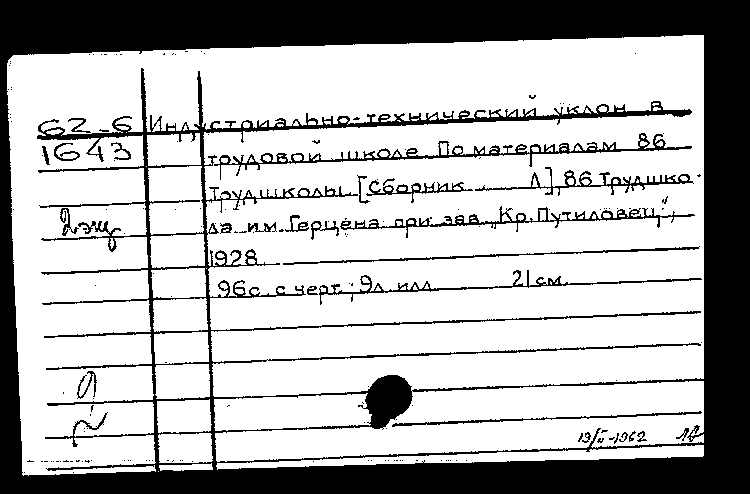 62-6 Индустриально-технический уклон в
1643 трудовой школе. По материалам 86
Трудшколы. [Сборник. Л], 86 Трудшко-
2 экз ла им. Герцена при зав. „Кр. Путиловец",
1928.
96с. с черт.; 9л. илл. 21см.
19/II-1962